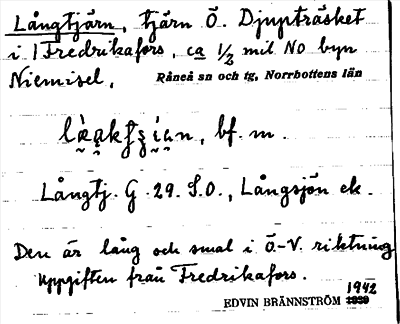 Långtjärn, tjärn Ö. Djupträsket
i Fredrikafors, ca 1/2 mil NO byn
Niemisel, Råneå sn och tg, Norrbottens län
bf. m.
Långtj. G. 29. S.O., Långsjön ek.
Den är lång och smal i Ö.-V. riktning
Uppgiften från Fredrikafors.
1942
EDVIN BRÄNNSTRÖM 1939